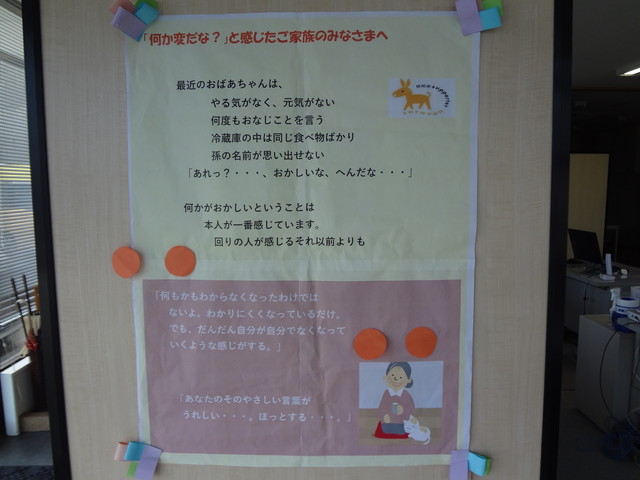 「何か変だな？」と感じたご家族のみなさまへ
最近のおばあちゃんは、
やる気がなく、元気がない
何度もおなじことを言う
冷蔵庫の中は同じ食べ物ばかり
孫の名前が思い出せない
「あれっ？・・・、おかしいな、へんだな・・・」
何かがおかしいということは
本人が一番感じています。
回りの人が感じるそれ以前よりも
「何もかもわからなくなったわけでは
ないよ、わかりにくくなっているだけ、
でも、だんだん自分が自分でなくなって
いくような感じがする。」
「あなたのそのやさしい言葉が
うれしい・・・。ほっとする・・・。」